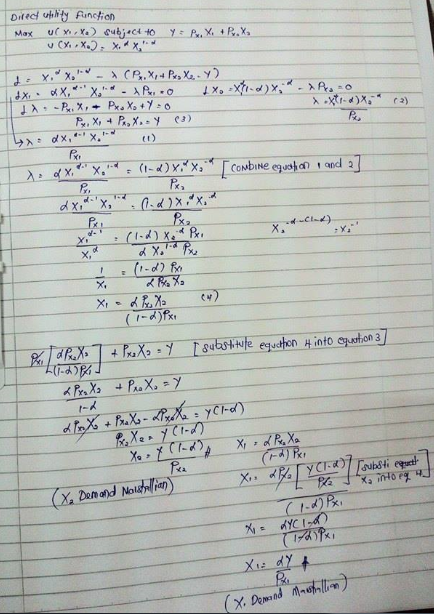 Direct utility Function
Max U(X₁, X₂) subject to Y = Px₁X₁ + Px₂X₂
U(X₁, X₂) = X₁^α X₂^1-α
L = X₁^α X₂^1-α - λ (Px₁X₁ + Px₂X₂ - Y)
LX₁ = αX₁^α-1 X₂^1-α - λPx₁ = 0 LX₂ = X₁^α(1-α)X₂^-α - λPx₂ = 0
Lλ = -Px₁X₁ - Px₂X₂ + Y = 0 λ = X₁^α(1-α)X₂^-α / Px₂ (2)
Px₁X₁ + Px₂X₂ = Y (3)
↳ λ = αX₁^α-1 X₂^1-α / Px₁ (1)
λ = αX₁^α-1 X₂^1-α / Px₁ = (1-α) X₁^α X₂^-α / Px₂ [COMBINE equation 1 and 2]
αX₁^α-1 X₂^1-α / Px₁ = (1-α) X₁^α X₂^-α / Px₂
X₁^α-1 / X₁^α = (1-α) X₂^-α Px₁ / α X₂^1-α Px₂ X₂^-α-(1-α) = X₂^-1
1 / X₁ = (1-α) Px₁ / αPx₂X₂
X₁ = αPx₂X₂ / (1-α)Px₁ (4)
Px₁ [αPx₂X₂ / (1-α)Px₁] + Px₂X₂ = Y [substitute equation 4 into equation 3]
αPx₂X₂ / 1-α + Px₂X₂ = Y
αPx₂X₂ + Px₂X₂ - αPx₂X₂ = Y(1-α)
Px₂X₂ = Y(1-α)
X₂ = Y(1-α) / Px₂
(X₂ Demand Marshallian)
X₁ = αPx₂X₂ / (1-α)Px₁
X₁ = αPx₂ [Y(1-α) / Px₂] / (1-α)Px₁ [substi X₂ into eq 4]
X₁ = αY(1-α) / (1-α)Px₁
X₁ = αY / Px₁
(X₁ Demand Marshallian)